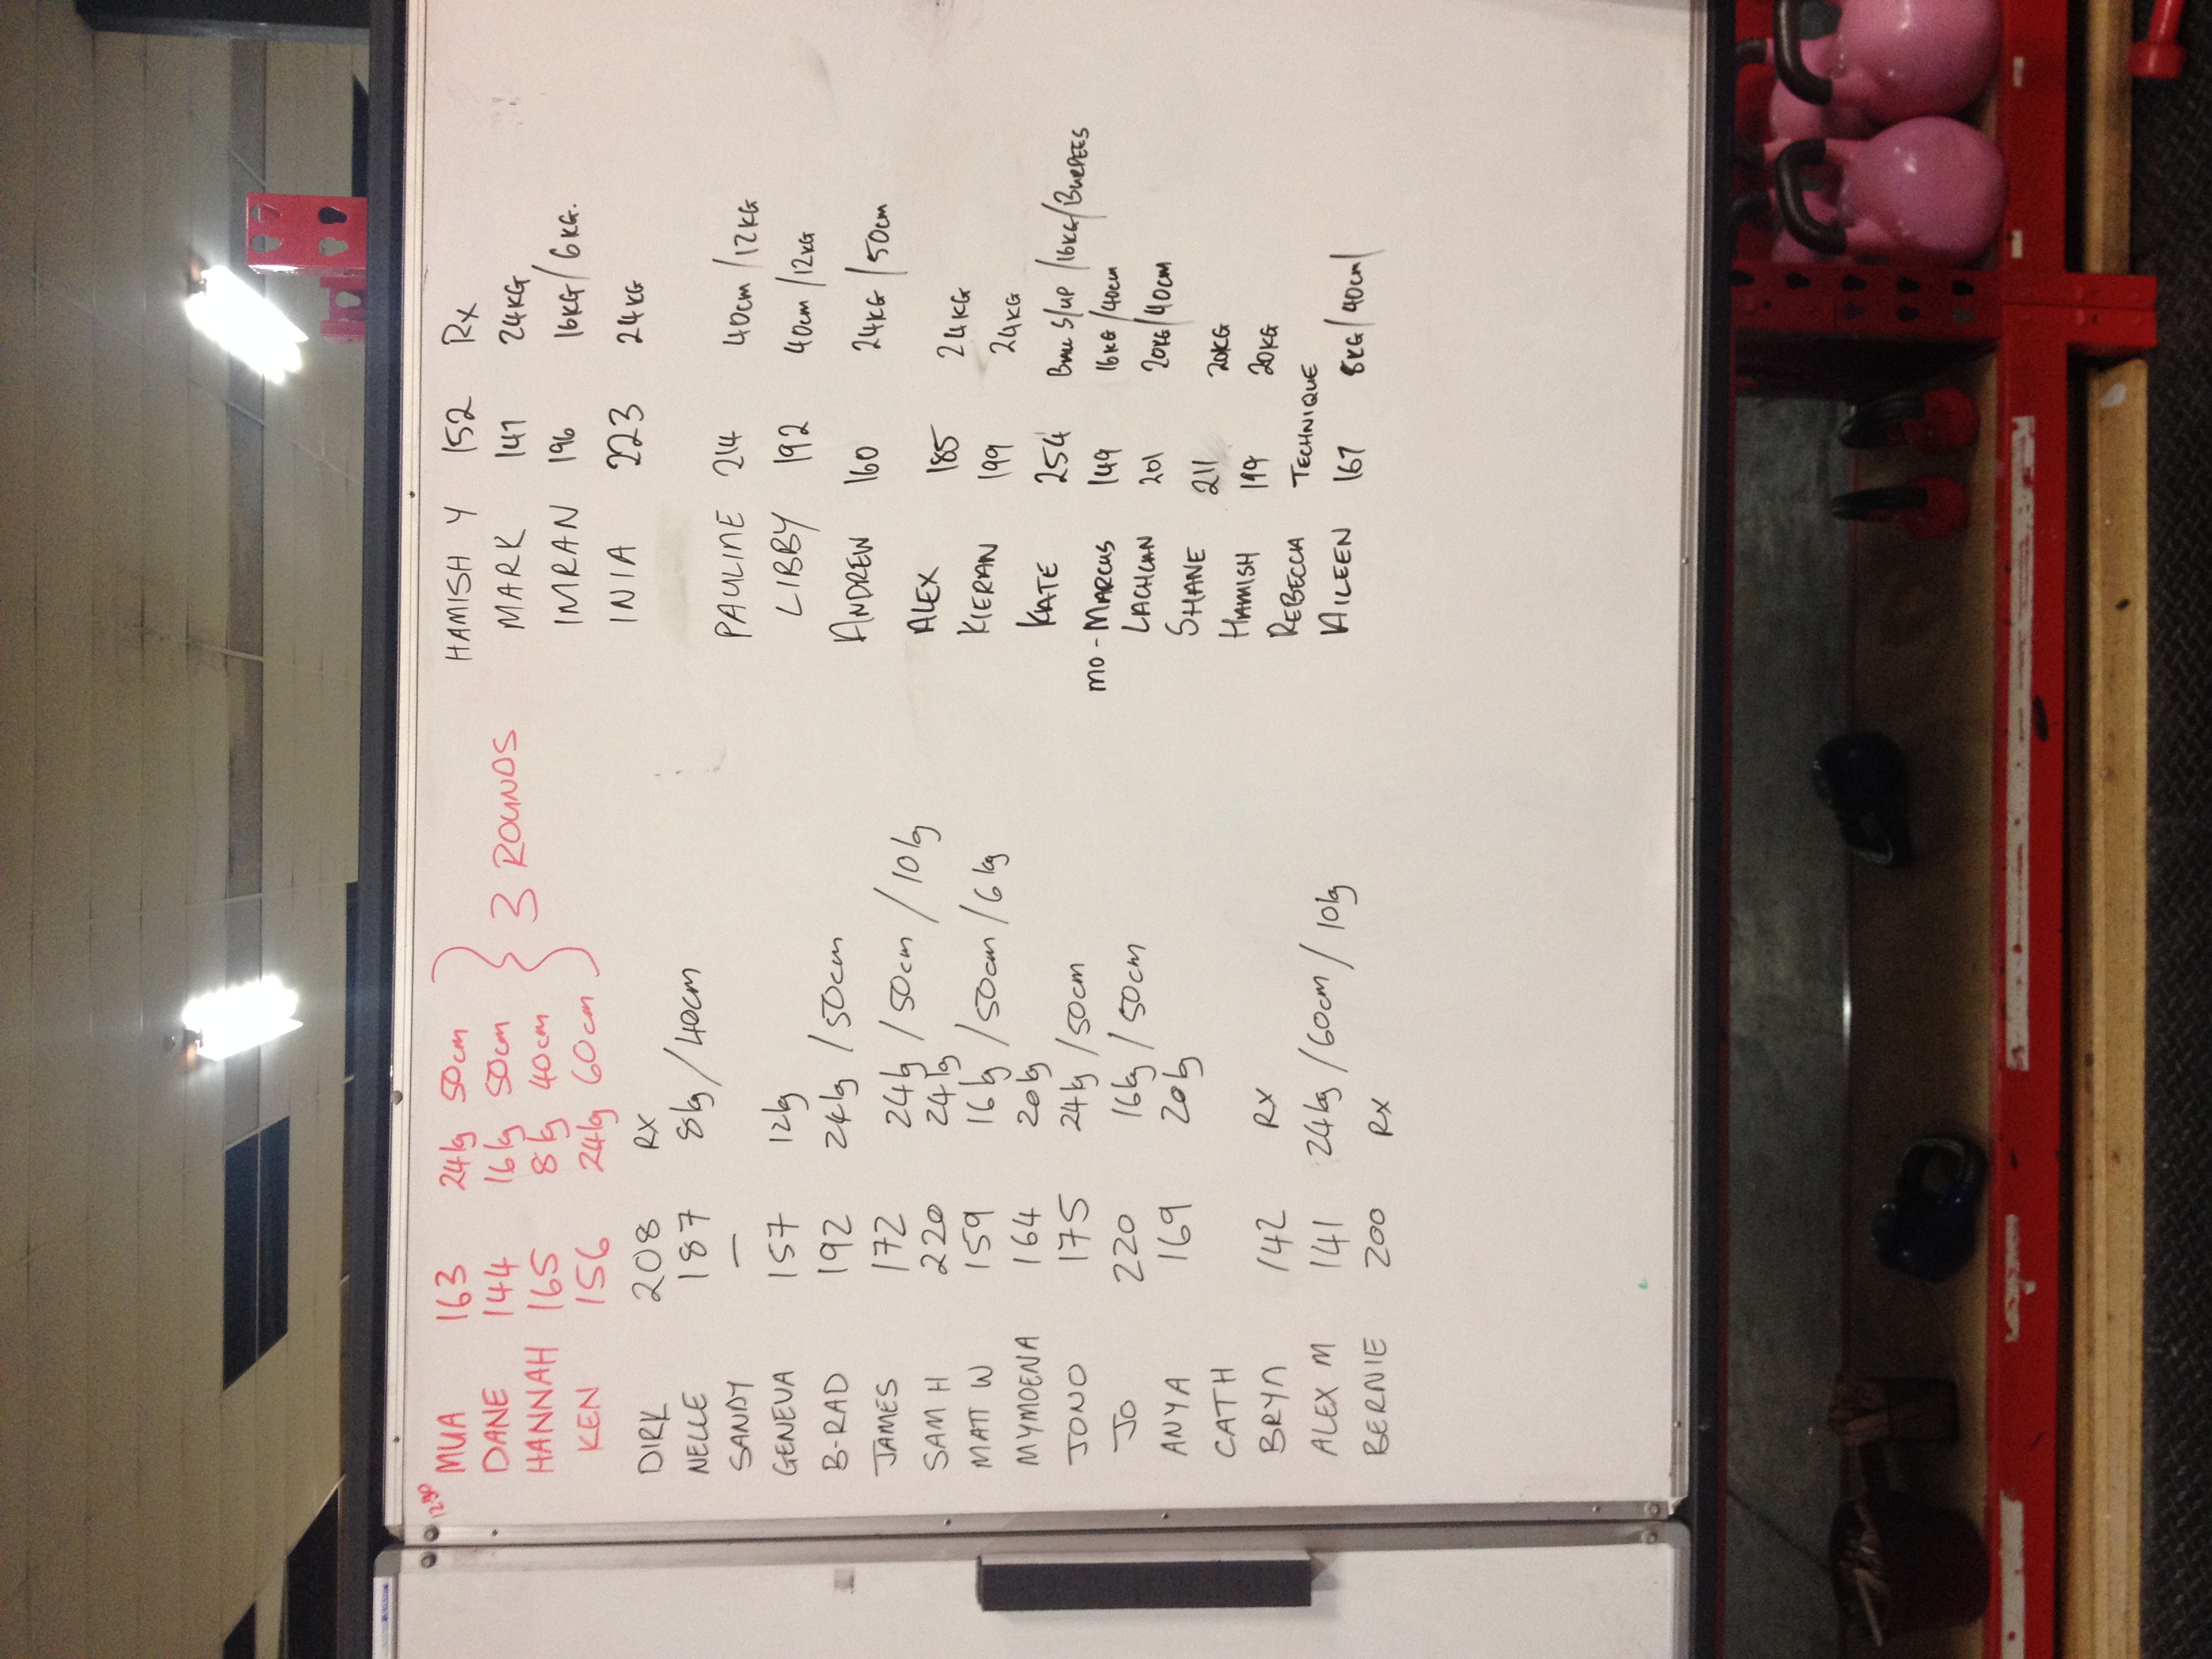 12:30
MUA 163 24kg 50cm
DANE 144 16kg 50cm
HANNAH 165 8kg 40cm
KEN 156 24kg 60cm
3 ROUNDS
DIRK 208 RX
NELLE 187 8kg / 40cm
SANDY —
GENEVA 157 12kg
B-RAD 192 24kg / 50cm
JAMES 172 24kg / 50cm / 10kg
SAM H 220 24kg
MATT W 159 16kg / 50cm / 6kg
MYMOENA 164 20kg
JONO 175 24kg / 50cm
JO 220 16kg / 50cm
ANYA 169 20kg
CATH
BRYN 142 RX
ALEX M 141 24kg / 60cm / 10kg
BERNIE 200 RX
HAMISH Y 152 Rx
MARK 147 24KG
IMRAN 196 16KG / 6KG.
INIA 223 24KG
PAULINE 214 40cm / 12KG
LIBBY 192 40cm / 12KG
ANDREW 160 24KG / 50cm
ALEX 185 24KG
KIERAN 199 24KG
KATE 254 S/UP / 16KG / BURPEES
MO - MARCUS 149 16KG / 40cm
LACHLAN 201 20KG / 40cm
SHANE 211 20KG
HAMISH 199 20KG
REBECCA TECHNIQUE
AILEEN 167 8KG / 40cm /